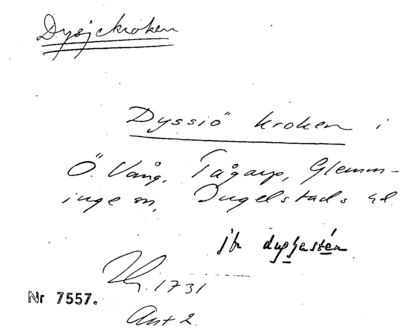 Dysjekroken
Dyssiö kroken i
Ö. Vång, Tågarp, Glemm-
inge sn, Ingelstads hd
jfr
1731
Nr 7557.
Ant 2.